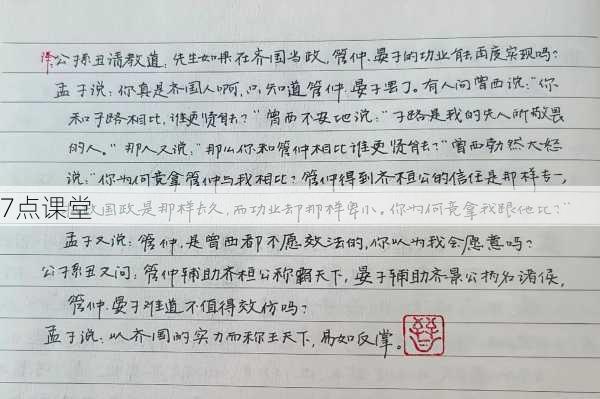 公孙丑请教道，先生如果在齐国当政，管仲、晏子的功业能再度实现吗？
孟子说：你真是齐国人啊，只知道管仲、晏子罢了。有人问曾西说："你
和子路相比，谁更贤能？"曾西不安地说："子路是我的先人所敬畏
的人。"那人又说："那么你和管仲相比谁更贤能？"曾西勃然大怒
说："你为何竟拿管仲与我相比？管仲得到齐桓公的信任是那样专一，
国政是那样长久，而功业却那样卑小。你为何竟拿我跟他比？"
7点课堂
孟子又说：管仲，是曾西都不愿效法的，你以为我会愿意吗？
公孙丑又问：管仲辅助齐桓公称霸天下，晏子辅助齐景公扬名诸侯，
管仲、晏子难道不值得效仿吗？
孟子说：以齐国的实力而称王天下，易如反掌。